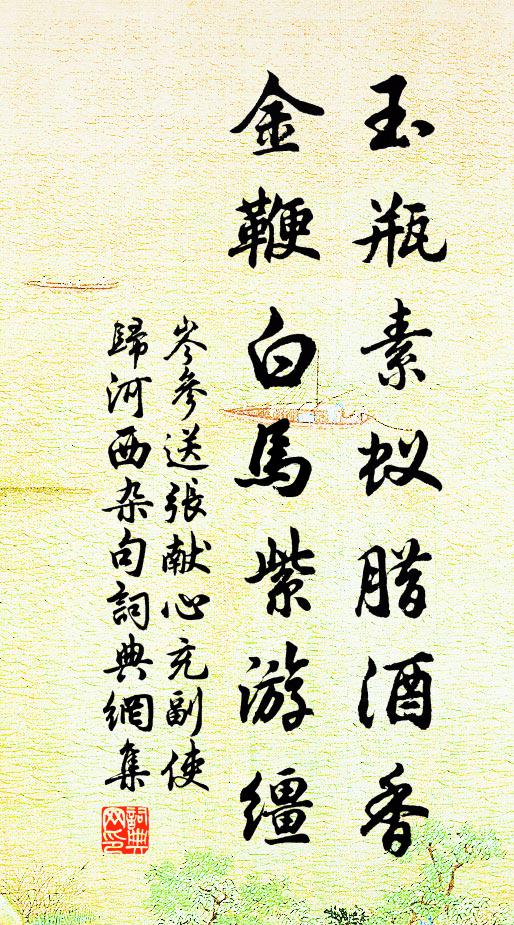 玉瓶素蚁腊酒香
金鞭白馬紫游缰
岑參送張献心充副使
歸河西杂句詞典網集
詞典网印